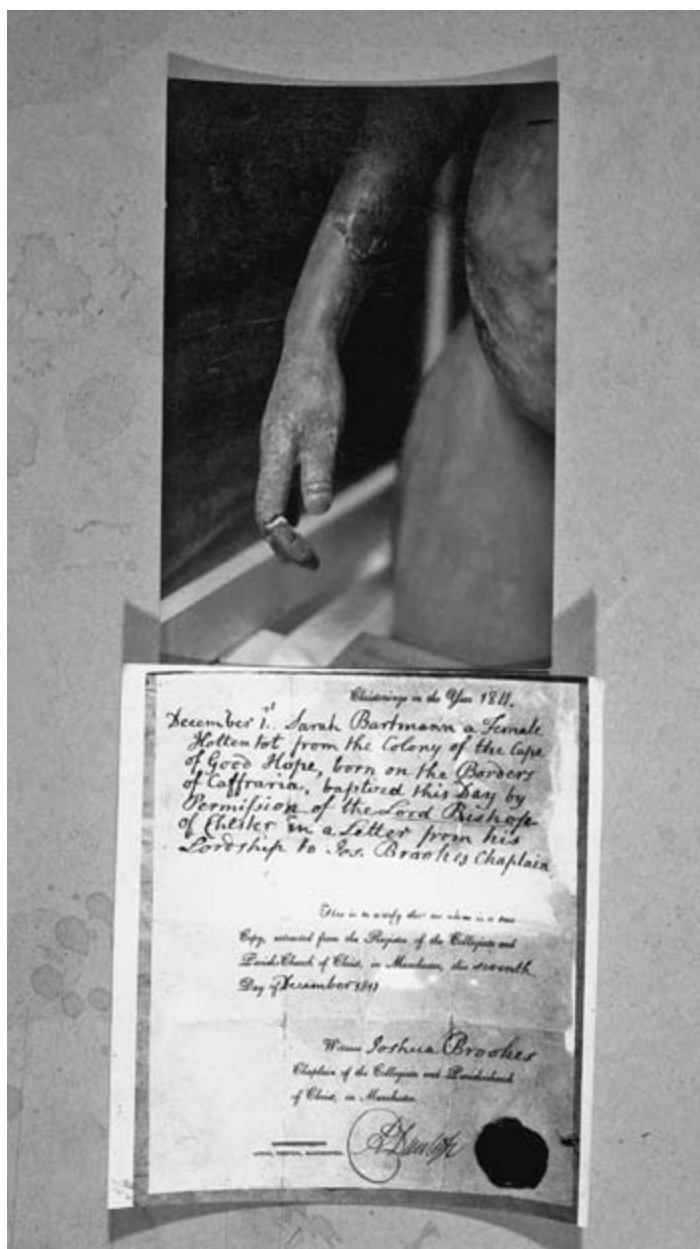 Christenings in the Year 1811.
December 1st. Sarah Bartmann a Female
Hottentot from the Colony of the Cape
of Good Hope, born on the Borders
of Caffraria, baptized this Day by
Permission of the Lord Bishop
of Chester in a Letter from his
Lordship to Jos. Brookes Chaplain
This is to certify that the above is a true
Copy, extracted from the Register of the Collegiate and
Parish Church of Christ, in Manchester, this seventh
Day of December 1811
Witness Joshua Brookes
Chaplain of the Collegiate and Parish church
of Christ, in Manchester.